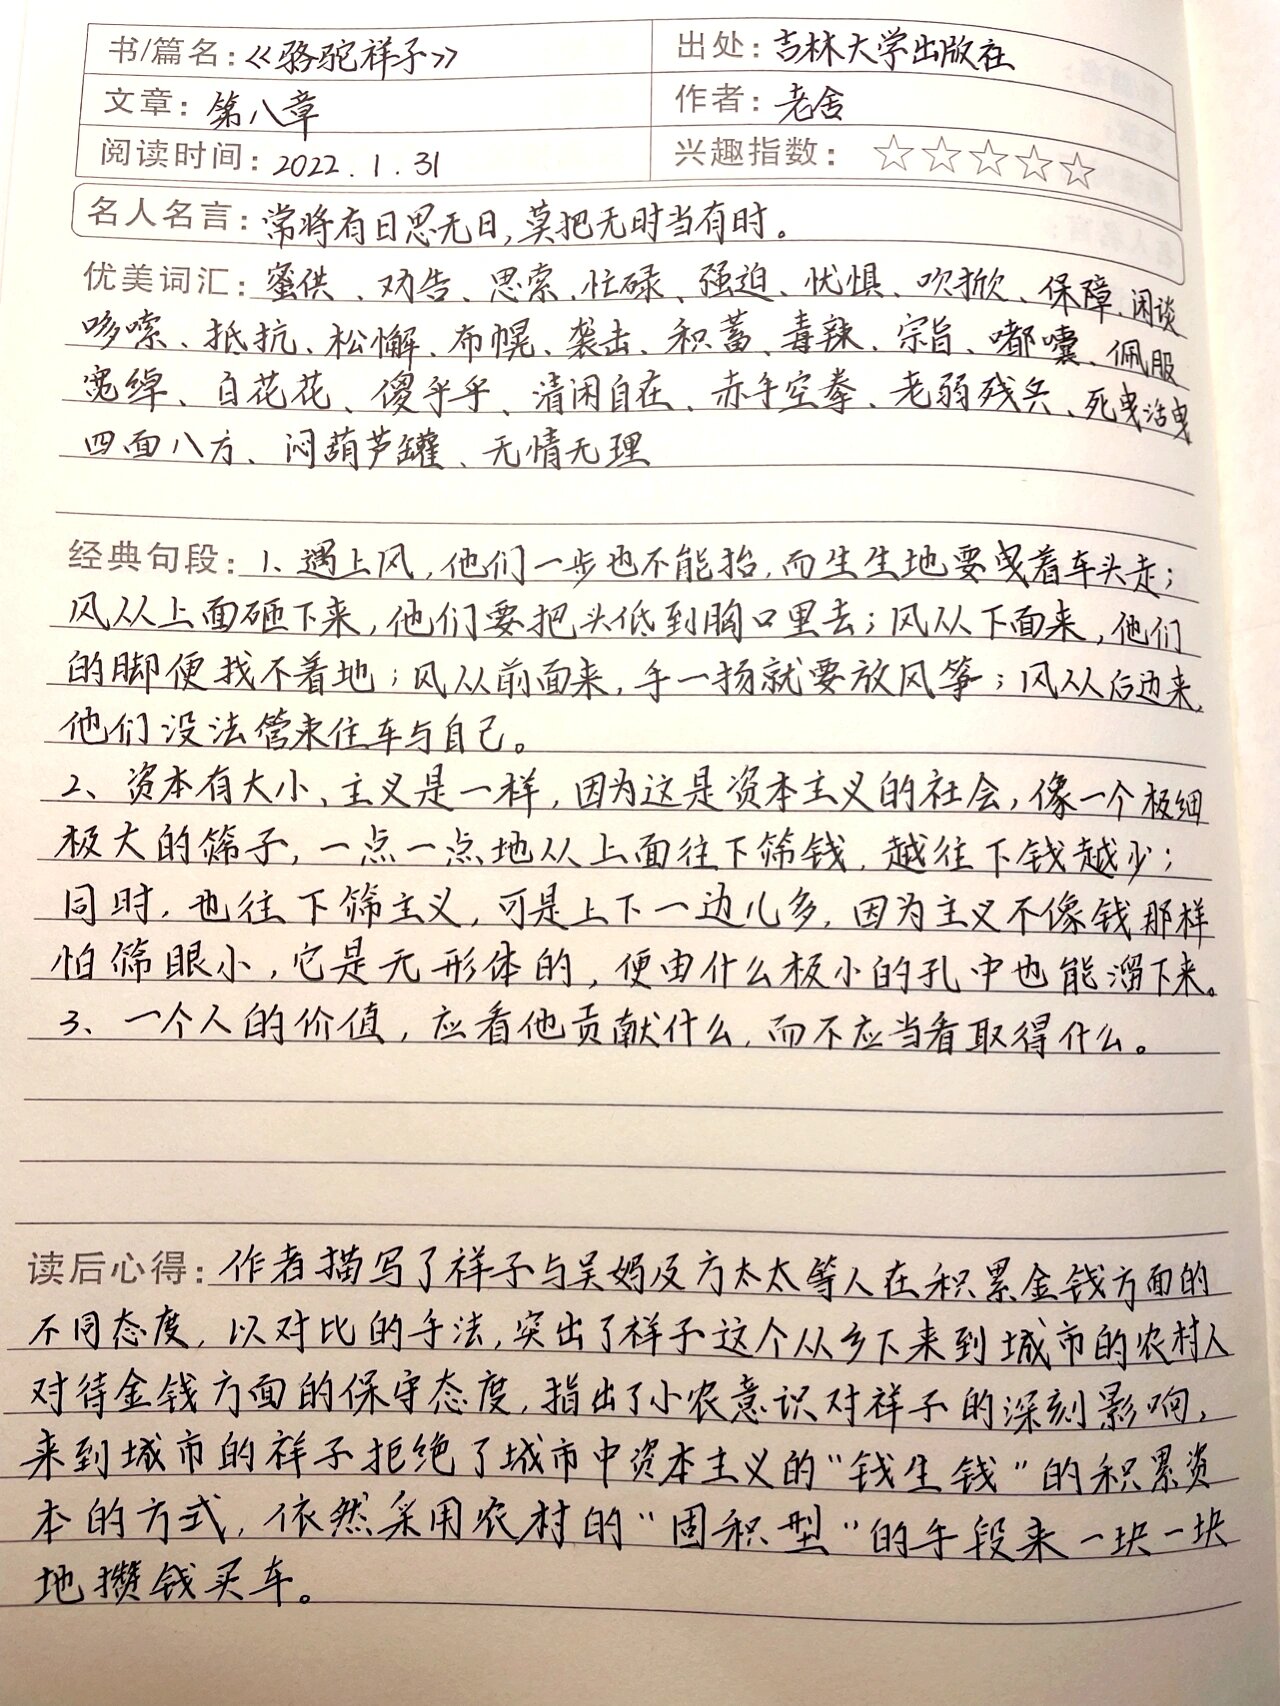 书/篇名：《骆驼祥子》 出处：吉林大学出版社
文章：第八章 作者：老舍
阅读时间：2022.1.31 兴趣指数：☆☆☆☆☆
名人名言：常将有日思无日，莫把无时当有时。
优美词汇：蜜供、劝告、思索、忙碌、强迫、忧惧、吹掀、保障、闲谈
哆嗦、抵抗、松懈、布幌、袭击、积蓄、毒辣、宗旨、嘟囔、佩服
宽绰、白花花、傻乎乎、清闲自在、赤手空拳、老弱残兵、死曳活曳
四面八方、闷葫芦罐、无情无理
经典句段：1、遇上风，他们一步也不能抬，而生生地要曳着车头走；
风从上面砸下来，他们要把头低到胸口里去；风从下面来，他们
的脚便找不着地；风从前面来，手一扬就要放风筝；风从后边来，
他们没法管束住车与自己。
2、资本有大小、主义是一样，因为这是资本主义的社会，像一个极细
极大的筛子，一点一点地从上面往下筛钱，越往下钱越少；
同时，也往下筛主义，可是上下一边儿多，因为主义不像钱那样
怕筛眼小，它是无形体的，便由什么极小的孔中也能溜下来。
3、一个人的价值，应看他贡献什么，而不应当看取得什么。
读后心得：作者描写了祥子与吴妈及方太太等人在积累金钱方面的
不同态度，以对比的手法，突出了祥子这个从乡下来到城市的农村人
对待金钱方面的保守态度，指出了小农意识对祥子的深刻影响，
来到城市的祥子拒绝了城市中资本主义的“钱生钱”的积累资
本的方式，依然采用农村的“固积型”的手段来一块一块
地攒钱买车。